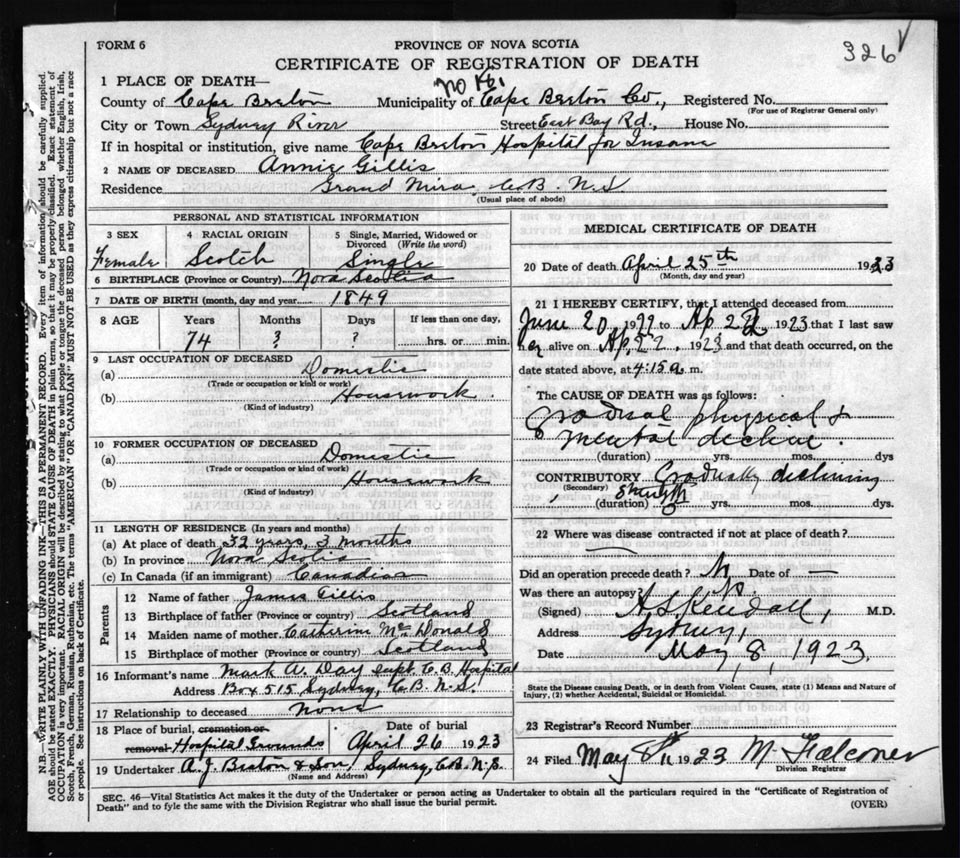 FORM 6
PROVINCE OF NOVA SCOTIA
CERTIFICATE OF REGISTRATION OF DEATH
326
1 PLACE OF DEATH—
No 16,
County of Cape Breton Municipality of Cape Breton Co., Registered No.
(For use of Registrar General only)
City or Town Sydney River Street East Bay Rd., House No.
If in hospital or institution, give name Cape Breton Hospital for Insane
2 NAME OF DECEASED Annie Gillis
Residence Grand Mira, C.B. N.S
(Usual place of abode)
PERSONAL AND STATISTICAL INFORMATION
3 SEX 4 RACIAL ORIGIN 5 Single, Married, Widowed or Divorced (Write the word)
Female Scotch Single
6 BIRTHPLACE (Province or Country) Nova Scotia
7 DATE OF BIRTH (month, day and year) 1849
8 AGE Years Months Days If less than one day,
74 ? ? hrs. or min.
9 LAST OCCUPATION OF DECEASED
(a) Domestic
(Trade or occupation or kind or work)
(b) Housework.
(Kind of industry)
10 FORMER OCCUPATION OF DECEASED
(a) Domestic
(Trade or occupation or kind of work)
(b) Housework
(Kind of industry)
11 LENGTH OF RESIDENCE (In years and months)
(a) At place of death 32 years, 3 months
(b) In province Nova Scotia
(c) In Canada (if an immigrant) Canadian
Parents
12 Name of father James Gillis
13 Birthplace of father (Province or country) Scotland
14 Maiden name of mother Catherine McDonald
15 Birthplace of mother (Province or country) Scotland
16 Informant's name Mark A. Day Supt. C.B. Hospital
Address Box 515 Sydney, C.B. N.S.
17 Relationship to deceased None
18 Place of burial, cremation or removal Hospital Grounds Date of burial April 26 1923
19 Undertaker A. J. Beaton & Son, Sydney, C.B. N.S.
(Name and Address)
MEDICAL CERTIFICATE OF DEATH
20 Date of death April 25th 1923
(Month, day and year)
21 I HEREBY CERTIFY, that I attended deceased from
June 20, to Ap. 22 1923 that I last saw
her alive on Ap. 22, 1923 and that death occurred, on the
date stated above, at 4.15 a. m.
The CAUSE OF DEATH was as follows:
Gradual physical &
mental decline.
(duration) yrs. mos. dys
CONTRIBUTORY Gradually declining
(Secondary) strength
(duration) yrs. mos. dys.
22 Where was disease contracted if not at place of death?
Did an operation precede death? N Date of —
Was there an autopsy? No.
(Signed) A S Kendall, M.D.
Address Sydney,
Date May 8, 1923.
State the Disease causing Death, or in death from Violent Causes, state (1) Means and Nature of Injury, (2) whether Accidental, Suicidal or Homicidal.
23 Registrar's Record Number
24 Filed May 8th 1923 M. Falconer
Division Registrar
SEC. 46—Vital Statistics Act makes it the duty of the Undertaker or person acting as Undertaker to obtain all the particulars required in the "Certificate of Registration of
Death" and to fyle the same with the Division Registrar who shall issue the burial permit.
(OVER)
N.B.—WRITE PLAINLY WITH UNFADING INK—THIS IS A PERMANENT RECORD. Every item of information should be carefully supplied.
AGE should be stated EXACTLY. PHYSICIANS should STATE CAUSE OF DEATH in plain terms, so that it may be properly classified. Exact statement of
OCCUPATION is very important. RACIAL ORIGIN will be described by stating to what people or tongue the deceased person belonged whether English, Irish,
Scotch, French, German, Russian, Ruthenian, etc. The terms "AMERICAN" OR "CANADIAN" MUST NOT BE USED as they express citizenship but not a race
or people. See instructions on back of Certificate.